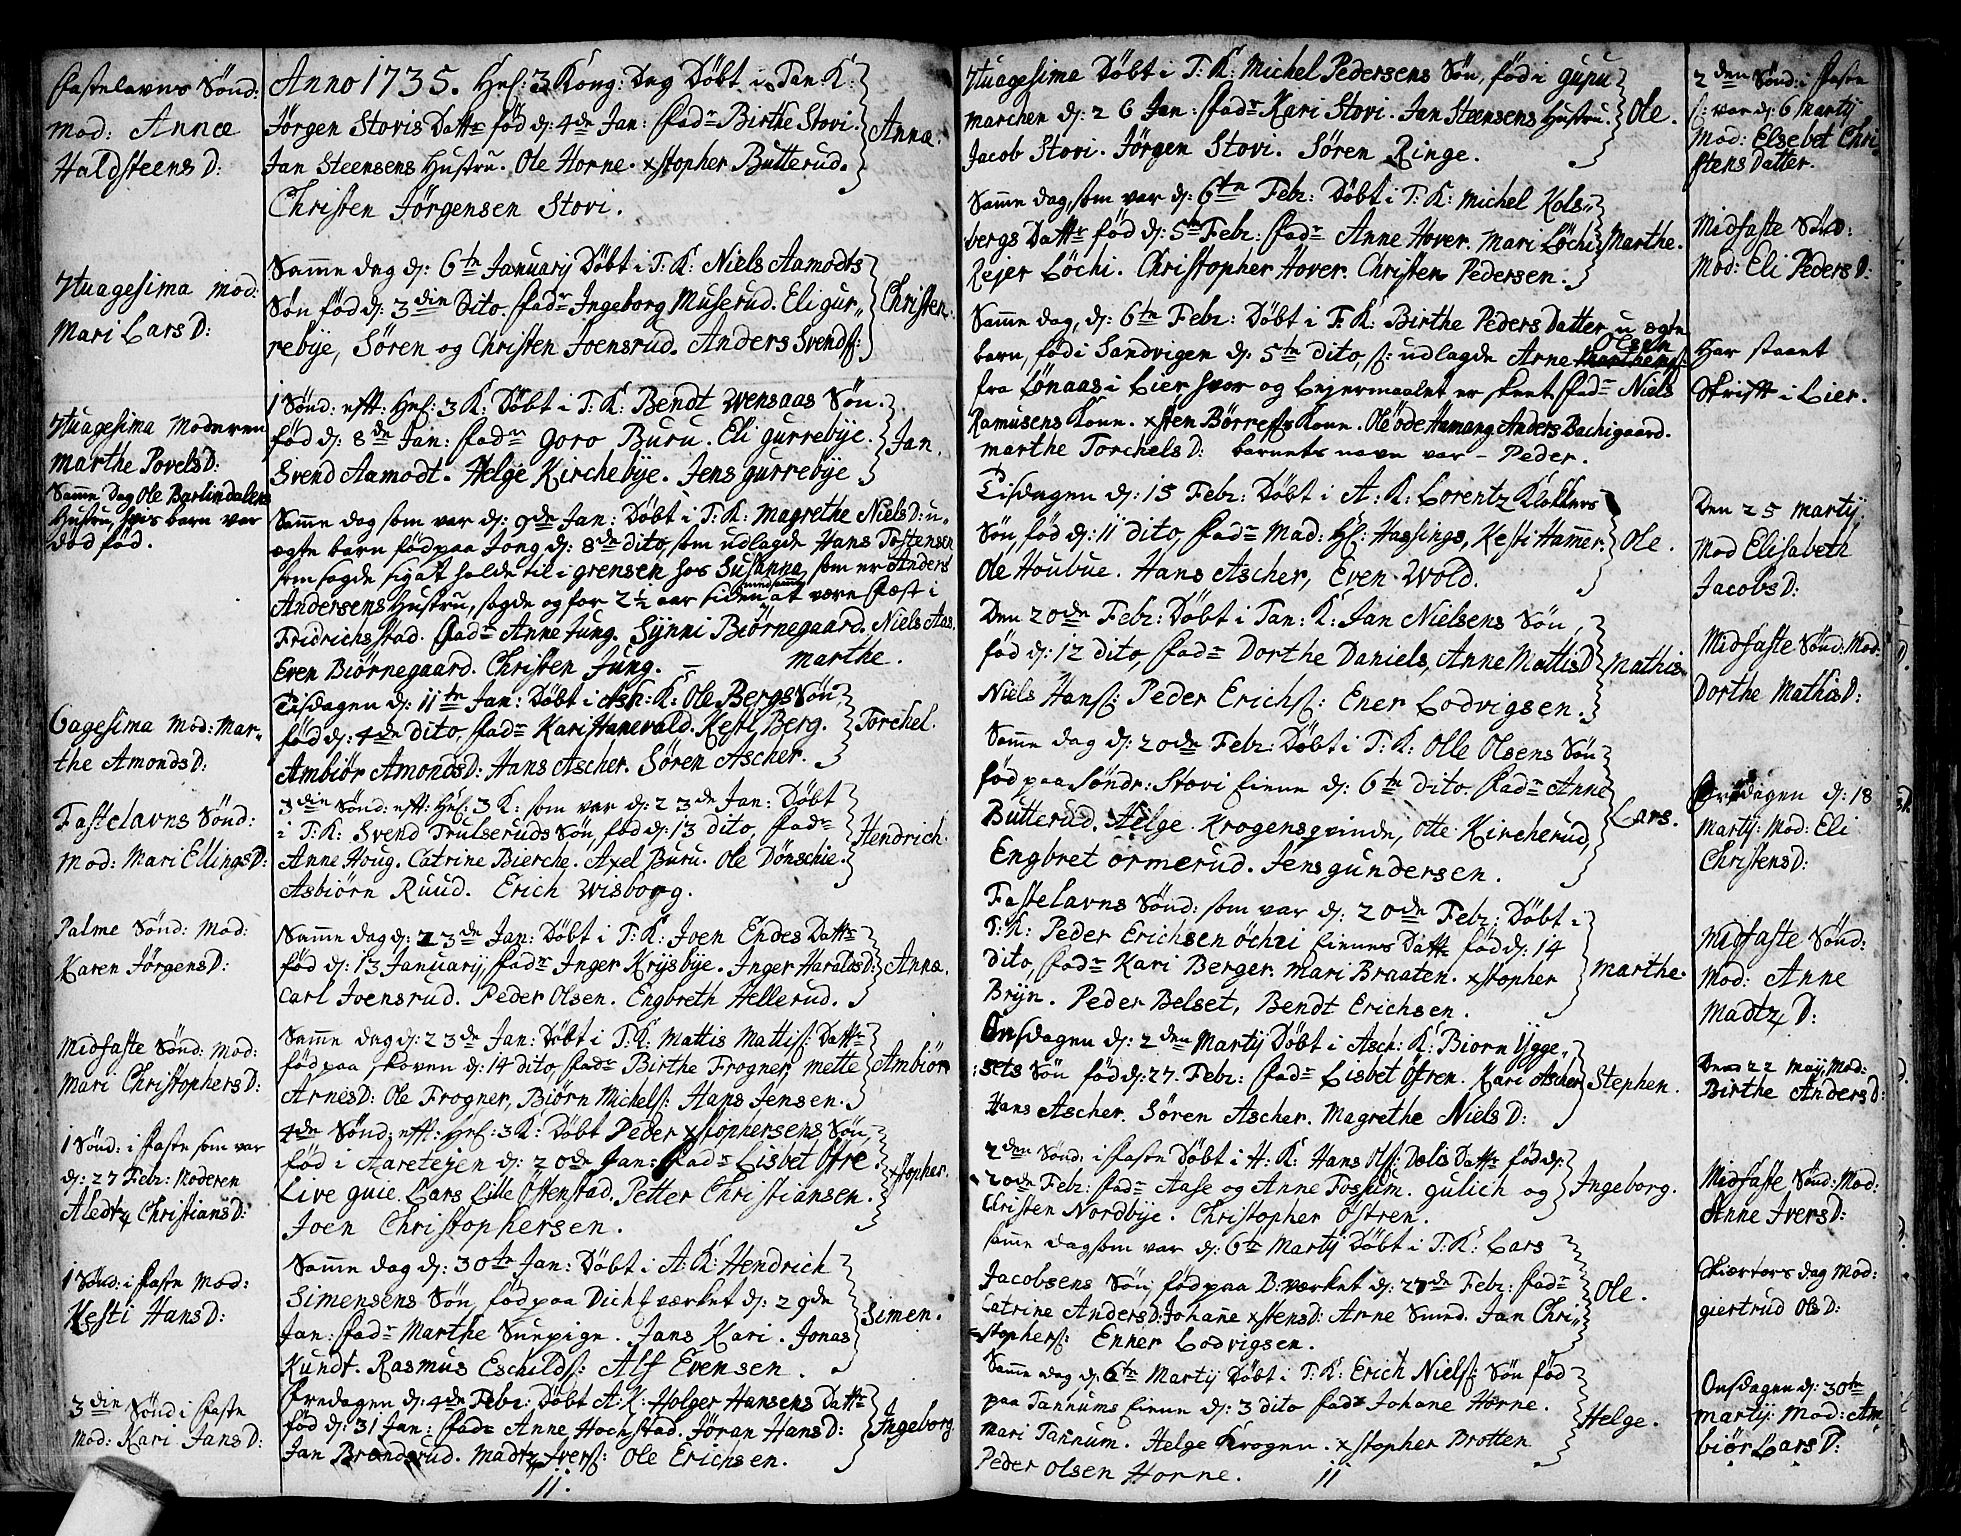 Fastelavns Sönd:
Mod: Annæ
Haldsteens D:
7tuagesima Mod:
Mari Lars D:
7tuagesima Moderen
Marthe Povels D:
Samme Dag Ole Barlindalens
Hustru, hvis barn var
død fød.
6agesima Mod: Mar-
the Amonds D:
Fastelavns Sönd:
Mod: Mari Ellings D:
Palme Sönd: Mod:
Karen Jörgens D:
Midfaste Sönd: Mod:
Mari Christophers D:
1 Sönd: i Faste som var
d: 27 Febr: Moderen
Aledtz Christians D:
1 Sönd: i Faste Mod:
Kesti Hans D:
3die Sönd i Faste
Mod: Kari Jans D:
Anno 1735. Hel: 3 Kong: Dag Döbt i Tan: K:
Jörgen Stovis Dattr fød d: 4de Jan: Fadr Birthe Stovi.
Jan Steensens Hustru. Ole Horne. xstopher Butterud.
Christen Jörgensen Stovi.
Annæ.
Samme dag d: 6te Januarij Döbt i T: K: Niels Aamodts
Søn fød d: 3die Dito Fadr Ingeborg Muserud. Eli gur-
rebÿe, Sören og Christen Joensrud. Anders Svends:
Christen.
1 Sönd: eft: Hel: 3 K: Döbt i T: K: Bendt Wensaas Søn
fød d: 8de Jan: Fadr Goro Buru. Eli gurrebÿe.
Svend Aamodt. Helge Kirchebÿe. Jens gurrebÿe
Jan.
Samme dag som var d: 9de Jan: Döbt i T: K: Magrethe Niels D: u-
ægte barn fød paa Jong d: 8de dito, som udlagde Hans Tostensen
som sagde sig at holde til i grensen hos Susanna, som er Anders
Andersens Hustru, sagde og for 2½ aar siden at være Fæst i
Fridrichsstad. Fadr Anne Jung. Sÿnni Biörnegaard. Niels Aas.
Even Biörnegaard. Christen Jung. – Marthe.
Tisdagen d: 11te Jan: Döbt i Ask: K: Ole Bergs Søn,
fød d: 4de dito, Fadr Kari Hanevald. Kesti Berg.
Ambiör Amonds D: Hans Ascher. Sören Ascher.
Torchel.
3die Sönd: eft: Hel: 3 K: som var d: 23de Jan: Döbt
i T: K: Svend Trulseruds Søn, fød d: 13 dito, Fadr
Anne Houg. Catrine Bierche. Axel Buru. Ole Dönschie.
Asbiörn Ruud. Erich Wisborg.
Hendrich.
Samme dag d: 23de Jan: Döbt i T: K: Joen Endes Dattr
fød d: 13 Januarij, Fadr Inger Krÿsbÿe. Inger Haralds D:
Carl Joensrud. Peder Olsen. Engbreth Hellerud.
Annæ.
Samme dag d: 23de Jan: Döbt i T: K: Mattis Mattis: Dattr
fød paa skoven d: 14 dito, Fadr Birthe Frogner, Mette
Arnes D: Ole Frogner, Biörn Michels: Hans Jensen.
Ambiör
4de Sönd: eft: Hel: 3 K: Döbt Peder xstophersens Søn,
fød i Aaretejen d: 20de Jan: Fadr Lisbet Öfre
Live guie. Lars Lille Ostenstad. Petter Christiansen.
Joen Christophersen.
xstopher.
Samme dag d: 30te Jan: Döbt i A: K: Hendrich
Simensens Søn, fød paa Dich: værket d: 29de
Jan: Fadr Marthe Surpige. Jans Kari. Jonas
Kundt. Rasmus Eschilds: Alf Evensen.
Simen.
Fredagen d: 4de Febr: Döbt A: K: Holger Hansens Dattr
fød d: 31 Jan: Fadr Anne Hochstad. Jöran Hans D:
Jan Brænderud. Madtz Ivers: Ole Erichsen.
Ingeborg.
11.
7tuagesima Döbt i T: K: Michel Pedersens Søn, fød i gupu
marchen d: 26 Jan: Fadr Kari Stovi. Jan Steensens Hustru.
Jacob Stovi. Jörgen Stovi. Sören Ringe.
Ole.
Samme dag, som var d: 6te Febr: Döbt i T: K: Michel Kols-
bergs Dattr fød d: 5te Febr: Fadr Anne Hover. Mari Löchi
Rejer Löchi. Christopher Hover. Christen Pedersen.
Marthe.
Samme dag, d: 6te Febr: Döbt i T: K: Birthe Peders Datter, u ægte
barn, fød i Sandvigen d: 5te dito, s: udlagde Arne Olsen
fra Lönaas i Lier hvor og Lejermaalet er skeet Fadr Niels
Ramusens Kone. xsten Börres: Kone. Ole öde Humang. Anders Bachigaard.
Marthe Torchels D: barnets navn var – Peder.
Tisdagen d: 15 Febr: Döbt i A: K: Lorentz Klokkers
Søn, fød d: 11 dito, Fadr Mad: Hl: Hassings, Kesti Hamer.
Ole Houbue. Hans Ascher, Even Wold.
Ole.
Den 20de Febr: Döbt i Tan: K: Jan Nielsens Søn,
fød d: 12 dito, Fadr Dorthe Daniels, Anne Mattis D
Niels Hans: Peder Erichs: Ener Lodvigsen.
Mathis
Samme dag d: 20de Febr: Döbt i T: K: Olle Olsens Søn
fød paa Söndr: Stovi Eiene d: 6te dito. Fadr Anne
Butterud. Helge Krogensqvinde, Otte Kircherud,
Engbret Ormerud. Jens gundersen.
Lars.
Fastelavns Sönd: som var d: 20de Febr: Döbt i
T: K: Peder Erichsen Öchri Eienes Dattr fød d: 14
dito, Fadr Kari Berger. Mari Braaten. xstopher
Brÿn. Peder Belset, Bendt Erichsen.
Marthe.
Onsdagen d: 2den Martij Döbt i Asch: K: Biorn Ygge-
sets Søn fød d: 27. Febr: Fadr Lisbet Öfren. Kari Ascher
Hans Ascher. Sören Ascher. Magrethe Niels D:
Stephen.
2den Sönd: i Faste Döbt i H: K: Hans Ols: Dælis Dattr fød d:
20de Febr: Fadr Aase og Anne Fossum. gulich og
Christen Nordbÿe. Christopher Östren.
Ingeborg.
Samme dag som var d: 6te Martij Döbt i T: K: Lars
Jacobsens Søn fød paa B:værket d: 27de Febr: Fadr
Catrine Anders D: Johane xstens D: Arne Smed. Jan Chri-
stophers: Enner Lodvigsen.
Ole.
Samme dag d: 6te Martij Döbt i T: K: Erich Niels: Søn fød
paa Tannums Eiene d: 3 dito Fadr Johane Horne.
Mari Tannum. Helge Krogen. xstopher Brotten
Peder Olsen Horne.
Helge.
11
2den Sönd: i Faste
s: var d: 6 Martij
Mod: Elsebet Chri-
stens Datter.
Midfaste Sönd:
Mod: Eli Peders D:
Har staaet
Skrift i Lier.
Den 25 Martij.
Mod Elisabeth
Jacobs D:
Midfaste Sönd: Mod:
Dorthe Mathis D:
Fredagen d: 18
Martij: Mod: Eli
Christens D:
Midfaste Sönd:
Mod: Anne
Madtz D:
Den 22 Maij, Mod:
Birthe Anders D:
Midfaste Sönd: Mod:
Anne Ivers D:
Skiærtors dag Mod:
giertrud Ols D:
Onsdagen d: 30te
Martij: Mod: Am-
biör Lars D: